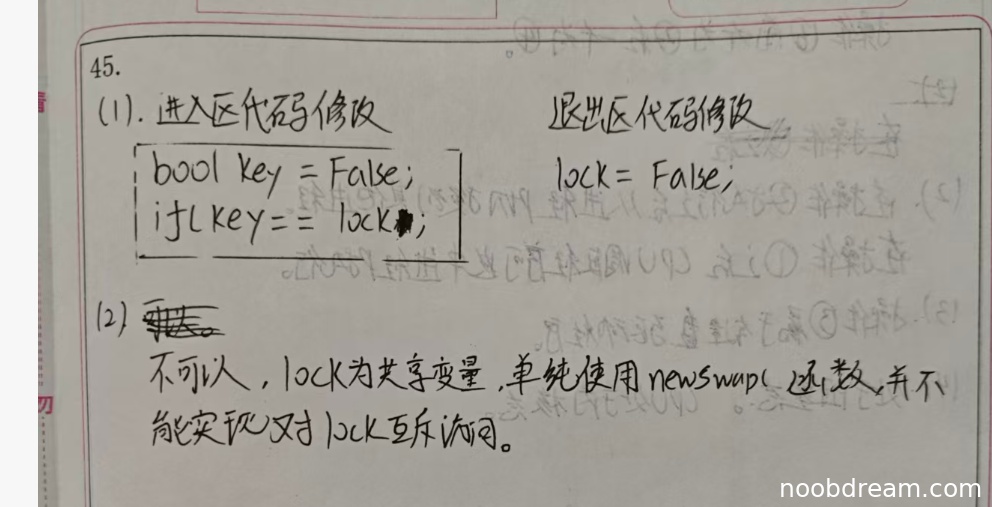 45.
(1). 进入区代码修改
bool key = False;
if( key == lock ;
退出区代码修改
lock = False;
(2)
不可以，lock为共享变量，单纯使用newswap( )函数，并不
能实现对lock互斥访问。
noobdream.com